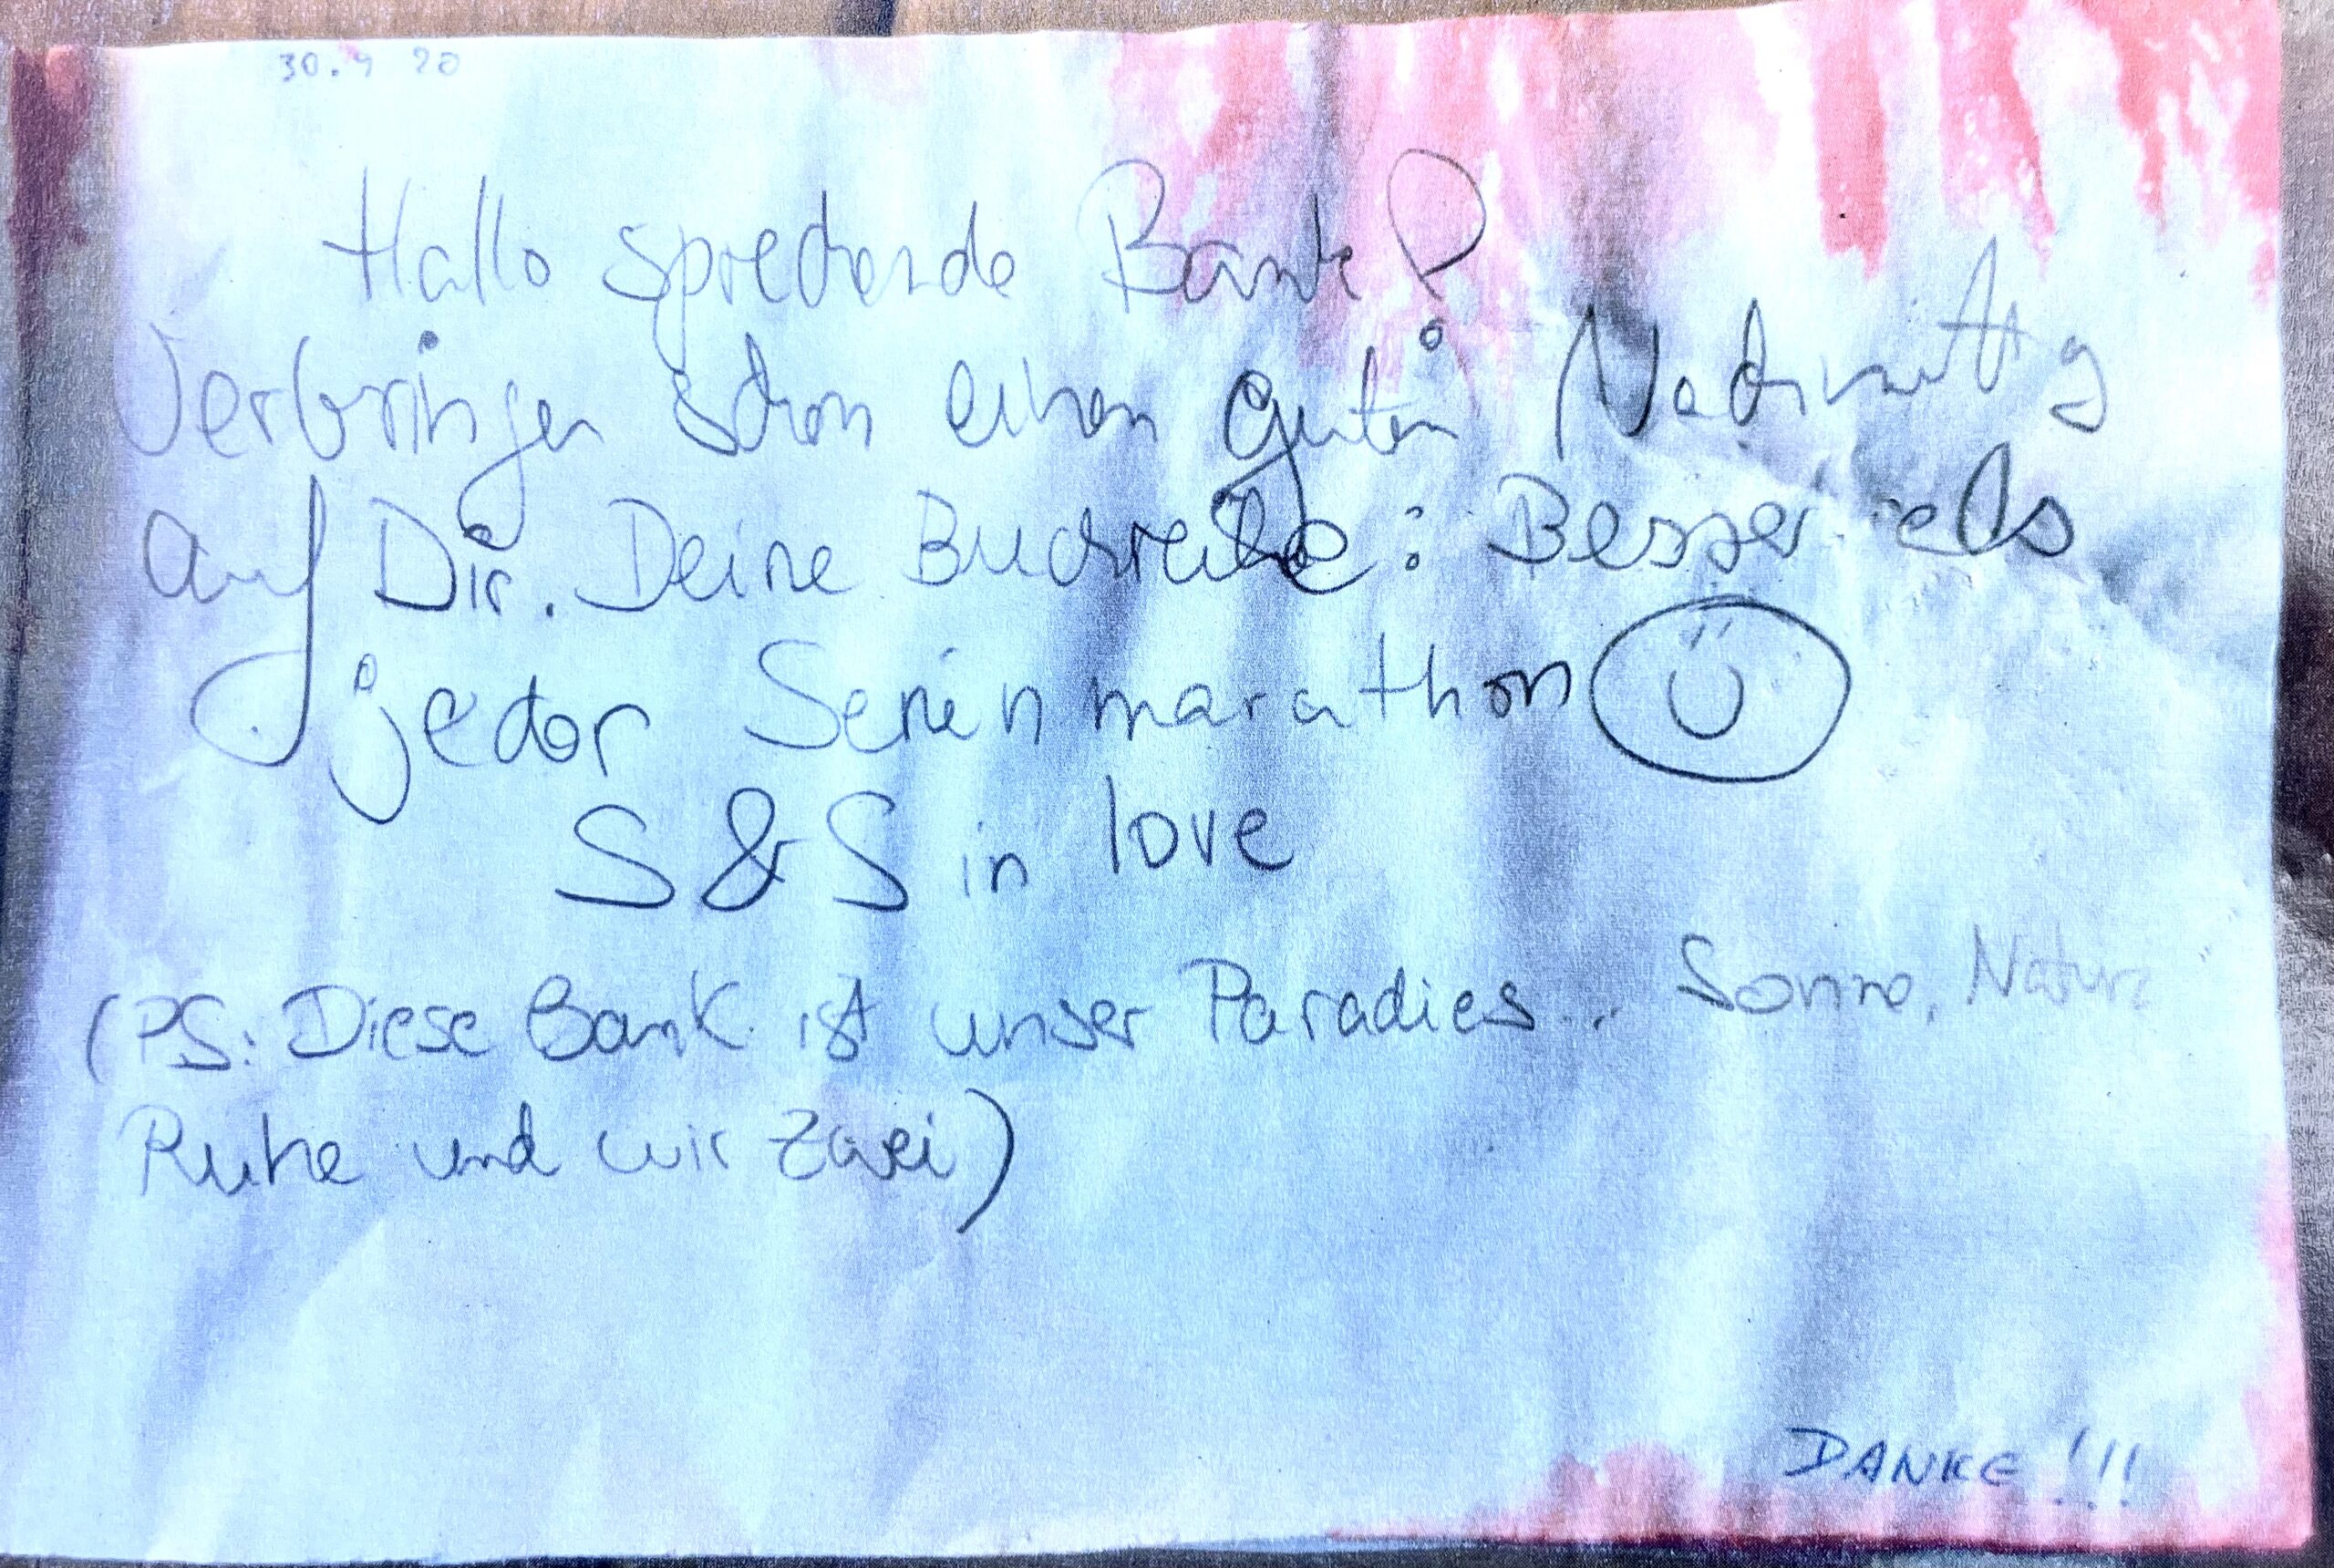 30.4 20
Hallo sprechende Bank!
Verbringen schon einen guten Nachmittag
auf Dir. Deine Buchreihe: Besser als
jeder Serienmarathon
S & S in love
(PS: Diese Bank ist unser Paradies... Sonne, Natur
Ruhe und wir zwei)
DANKE!!!